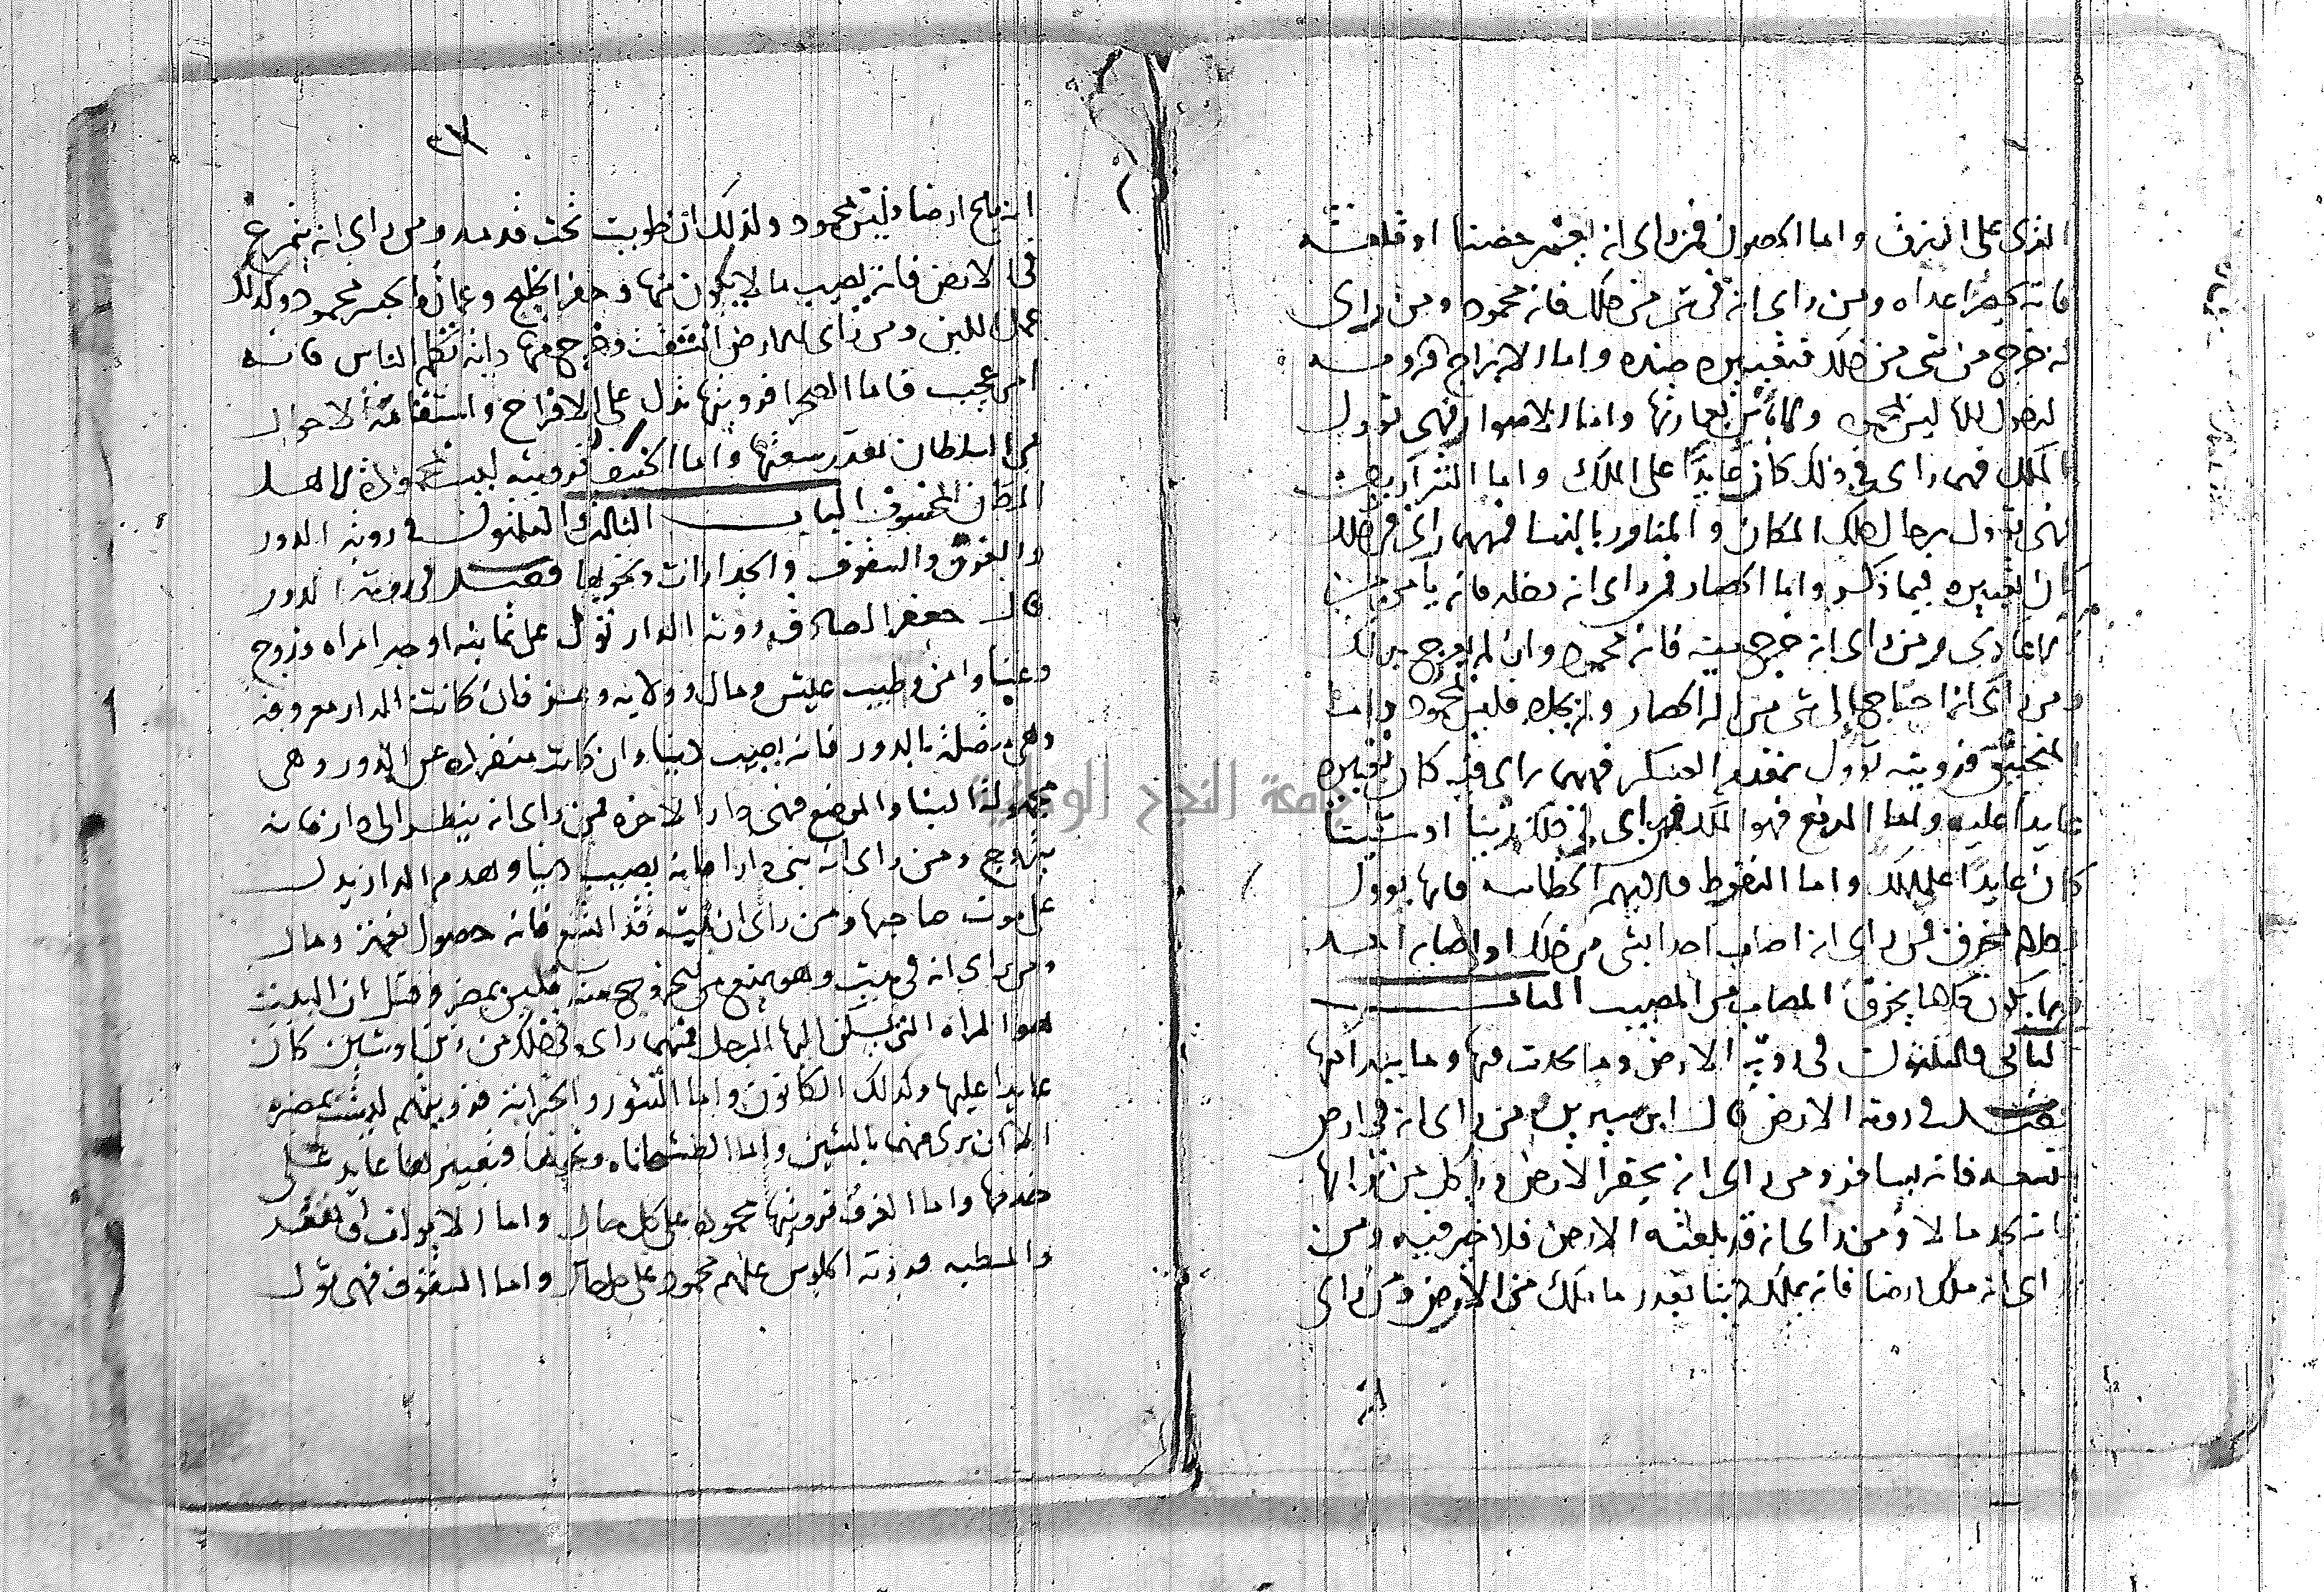 القرى على البنرف واما الحصون فمن راى انه يعمر حصنا او قلعة
فانه يحصر اعداه ومن راى انه في شى من ذلك فانه محمود ومن راى
انه خرج من شى من ذلك فتعبيره ضده واما الابراج فرويه
لدخول للها ليس بمحمود ولاباس بعمارتها واما الاسوار فهى تؤول
بالملك فمهما راى في ذلك كان عايدا على الملك واما الشراريف
فهى تؤول برجال ذلك المكان والمناور بالنسا فمهما راى في ذلك
كان تعبيره فيما ذكر واما الحصار فمن راى انه دخله فانه يامن من
الاعادى ومن راى انه خرج منه فانه محمود وان لم يخرج
ومن راى انه احتاج الى شى من اله الحصار ولم يجده فليس بمحمود واما
المنجنيق فرويته تؤول بمقدم العسكر فمهما راى فيه كان تعبيره
عايدا عليه واما المدفع فهو الملك فمن راى في ذلك زينا او شينا
كان عايدا على الملك واما النفوط فانها تؤول
بكلام مخرق فمن راى انه اصاب احدا بشى من ذلك او اصابه احد
فربما يكون كلاما يخرق المصاب من المصيب الباب
الثانى والثلثون في روية الارض وما يحدث فيها وما يبدا منها
فصل في روية الارض قال ابن سيرين من راى انه في ارض
فانه يسافر ومن راى انه يحفر الارض وياكل من ترابها
فانه يجد مالا ومن راى انه قد بلعته الارض فلا خير فيه ومن
راى انه ملك ارضا فانه يملك دنيا بقدر ما ملك من الارض ومن راى
٢٧
انه باع ارضا وليس بمحمود وكذلك ان طويت تحت قدمه ومن راى انه يتمرغ
في الارض فانه يصيب مالا يكون منها وحفر الخليج وعماره الجسر محمود وكذلك
عمل اللبن ومن راى الارض انشقت وخرج منها دابة تكلم الناس فانه
امر عجيب فاما الصحرا فرويتها تدل على الافراح واستقامة الاحوال
من السلطان بقدر سعتها واما الكنيف فرويته ليست بمحموده لاهل
المكان المخسوف الباب الثالث والثلثون في روية الدور
والغرف والسقوف والجدارات ونحوها فصل في روية الدور
قال جعفر الصادق روية الدار تؤل على ثمانية اوجه امراه وزوج
وغنا وامن وطيب عيش ومال وولايه وعز فان كانت الدار معروفة
وهى متصلة بالدور فانه يصيب دنيا وان كانت منفرده عن الدور وهى
مجهولة البنا والموضع فهى دار الاخره فمن راى انه ينظر الى دار فانه
يتزوج ومن راى انه بنى دارا فانه يصيب دنيا وهدم الدار يدل
على موت صاحبها ومن راى ان بيته قد اتسع فانه حصول نعمه ومال
ومن راى انه في بيت وهو يمنع من الخروج منه فليس بمضر وقيل ان البيت
هو المراه التى يسكن اليها الرجل فمهما راى في ذلك من زين او شين كان
عايدا عليها وكذلك الكانون واما التنور والخزانة فرويتهم ليست بمضره
الا ان يرى فيهما بالشين واما الطشتخاناه ونحوها فتعبيرها عايد على
خدمها واما الغرف فرويتها محموده على كل حال واما الايوان
والمسطبه فرويه الجلوس عليهم محمود على كل حال واما السقوف فهى تؤل